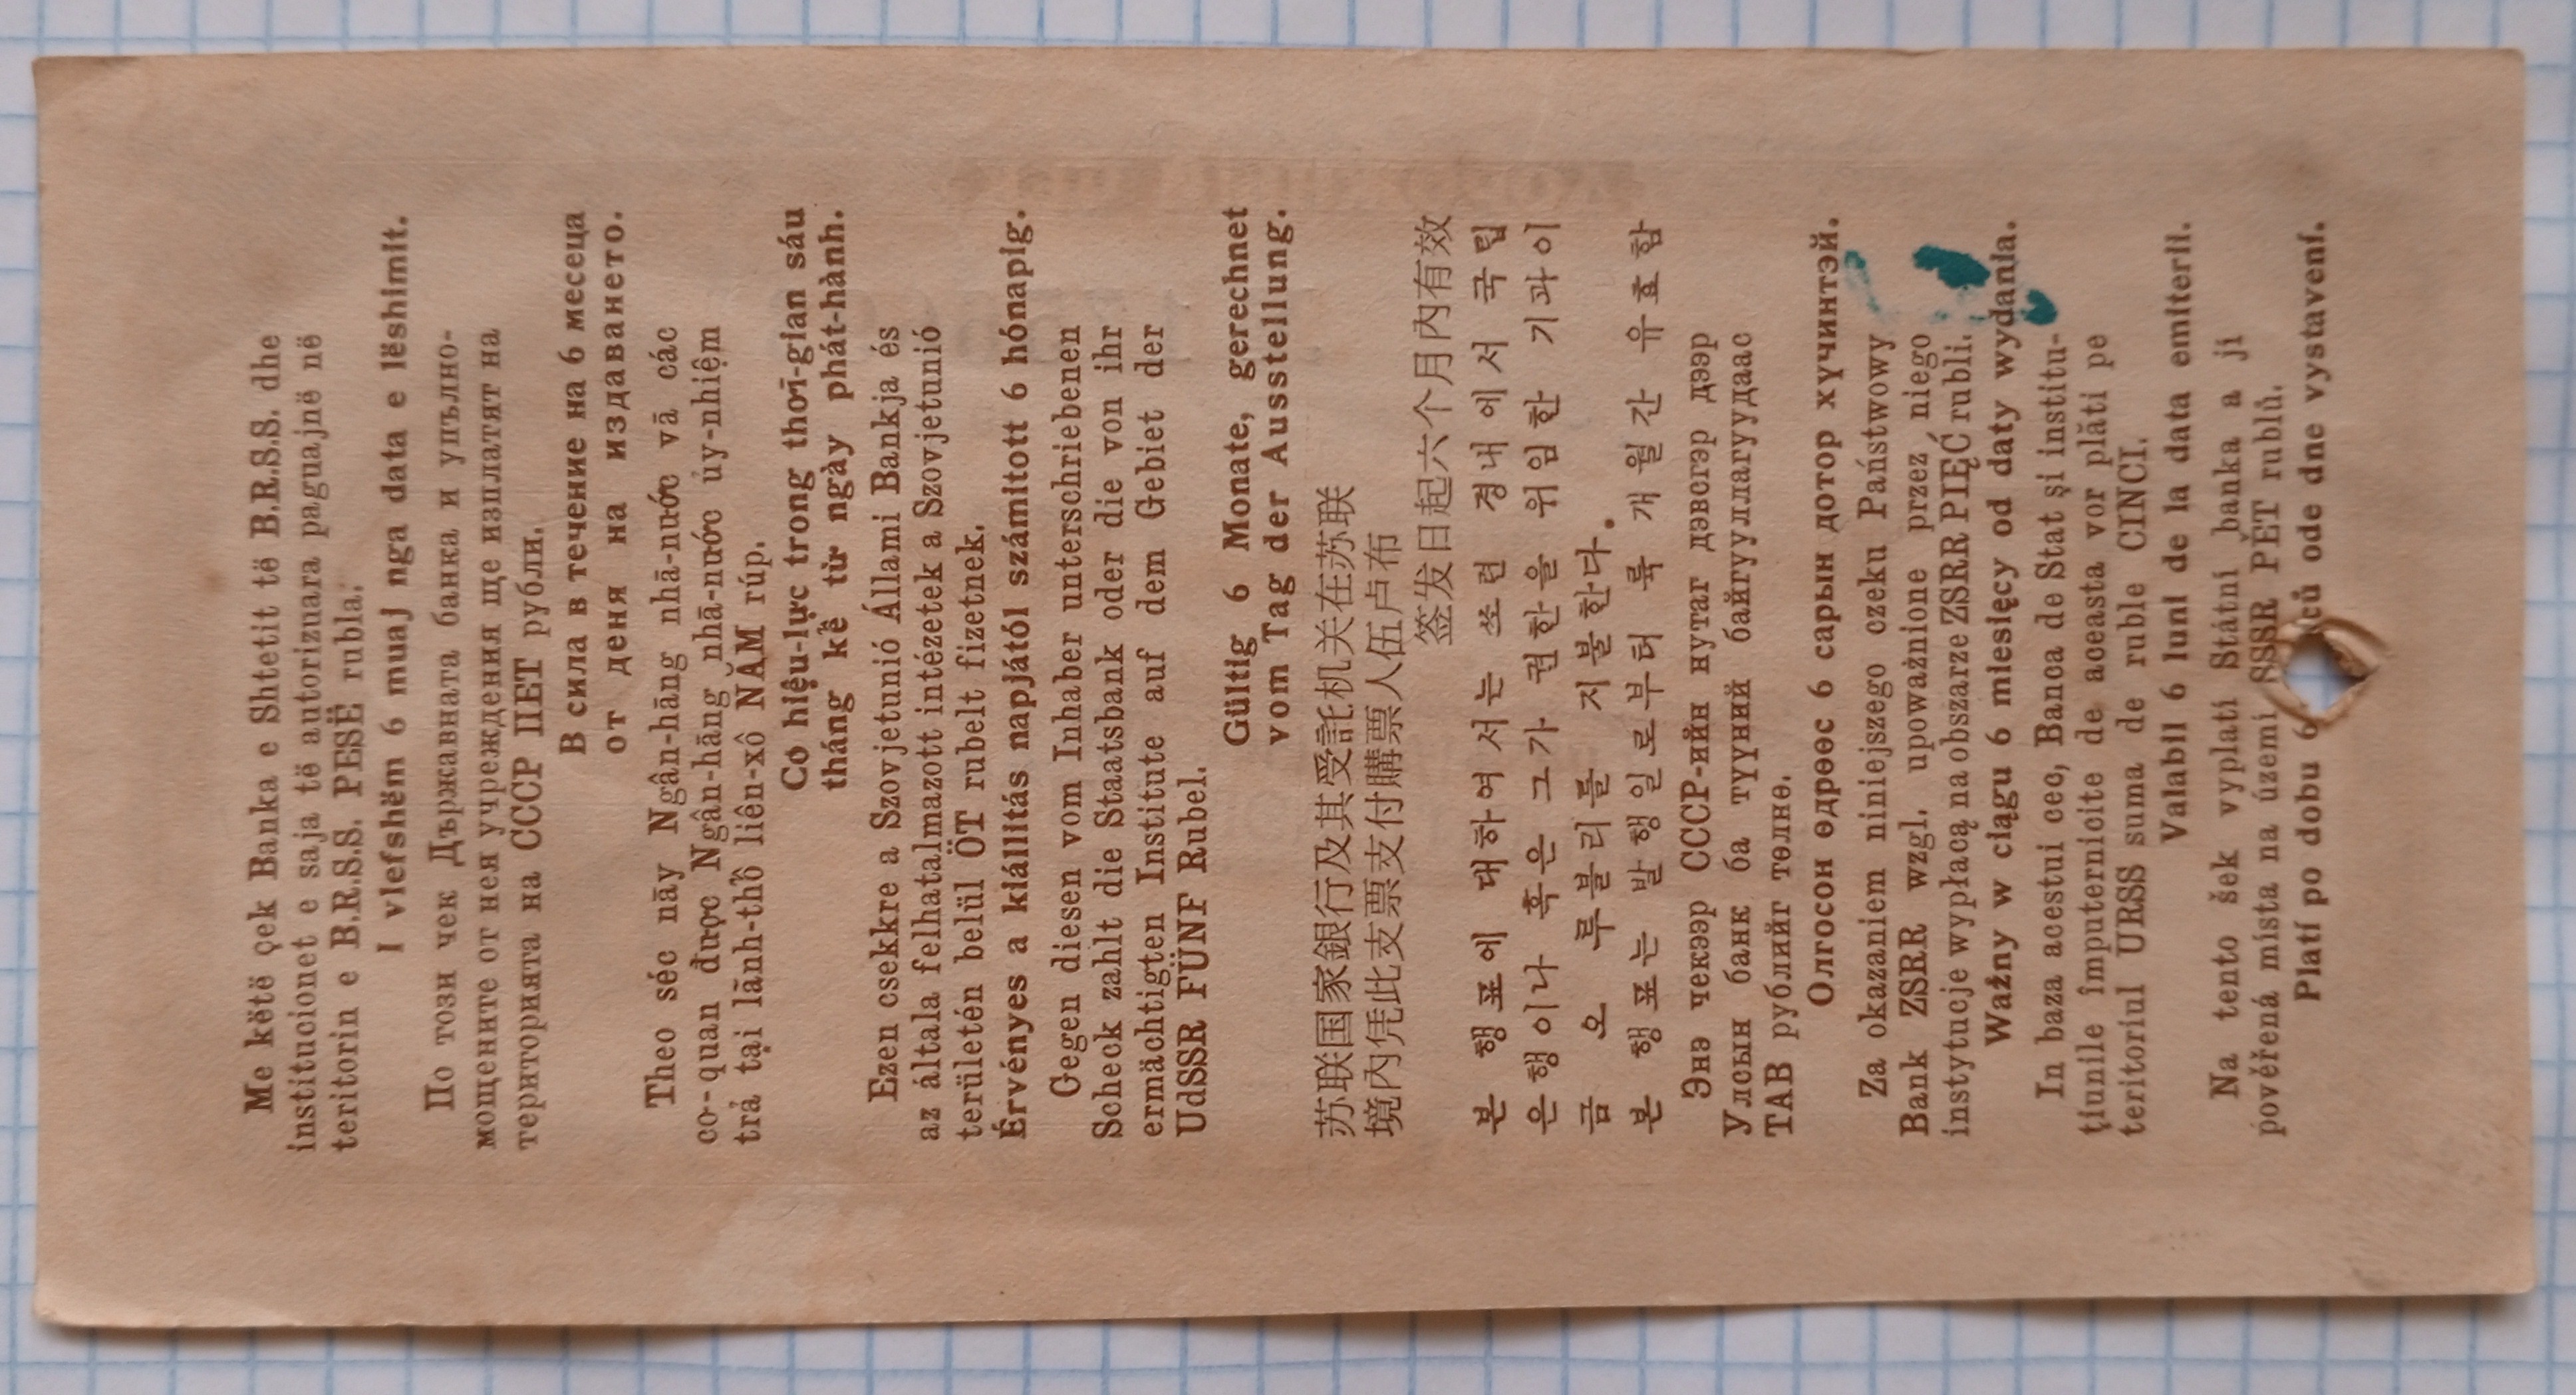 Me këtë çek Banka e Shtetit të B.R.S.S. dhe
institucionet e saja të autorizuara paguajnë në
teritorin e B.R.S.S. PESË rubla.
I vlefshëm 6 muaj nga data e lëshimit.
По този чек Държавната банка и упълно-
мощените от нея учреждения ще изплатят на
територията на СССР ПЕТ рубли.
В сила в течение на 6 месеца
от деня на издаването.
Theo séc nāy Ngân-hāng nhā-nước vā các
cơ-quan được Ngân-hāng nhā-nước ủy-nhiệm
trả tại lãnh-thổ liên-xô NĂM rúp.
Có hiệu-lực trong thơi-gian sáu
tháng kể từ ngày phát-hành.
Ezen csekkre a Szovjetunió Állami Bankja és
az általa felhatalmazott intézetek a Szovjetunió
területén belül ÖT rubelt fizetnek.
Érvényes a kiállitás napjától számitott 6 hónapig.
Gegen diesen vom Inhaber unterschriebenen
Scheck zahlt die Staatsbank oder die von ihr
ermächtigten Institute auf dem Gebiet der
UdSSR FÜNF Rubel.
Gültig 6 Monate, gerechnet
vom Tag der Ausstellung.
苏联国家銀行及其受託机关在苏联
境內凭此支票支付購票人伍卢布
签发日起六个月內有效
본 행표에 대하여서는 쏘련 경내에서 국립
은행이나 혹은 그가 권한을 위임한 기관이
금 오 루블리를 지불한다.
본 행표는 발행일로부터 륙 개월간 유효함
Энэ чекээр СССР-ийн нутаг дэвсгэр дээр
Улсын банк ба түүний байгууллагуудаас
ТАВ рублийг төлнө.
Олгосон өдрөөс 6 сарын дотор хүчинтэй.
Za okazaniem niniejszego czeku Państwowy
Bank ZSRR wzgl. upoważnione przez niego
instytucje wypłacą na obszarze ZSRR PIĘĆ rubli.
Ważny w ciągu 6 miesięcy od daty wydania.
In baza acestui cec, Banca de Stat și institu-
țiunile împuternicite de aceasta vor plăti pe
teritoriul URSS suma de ruble CINCI.
Valabil 6 luni de la data emiterii.
Na tento šek vyplatí Státní banka a jí
pověřená místa na území SSSR PĚT rublů.
Platí po dobu 6 ců ode dne vystavení.